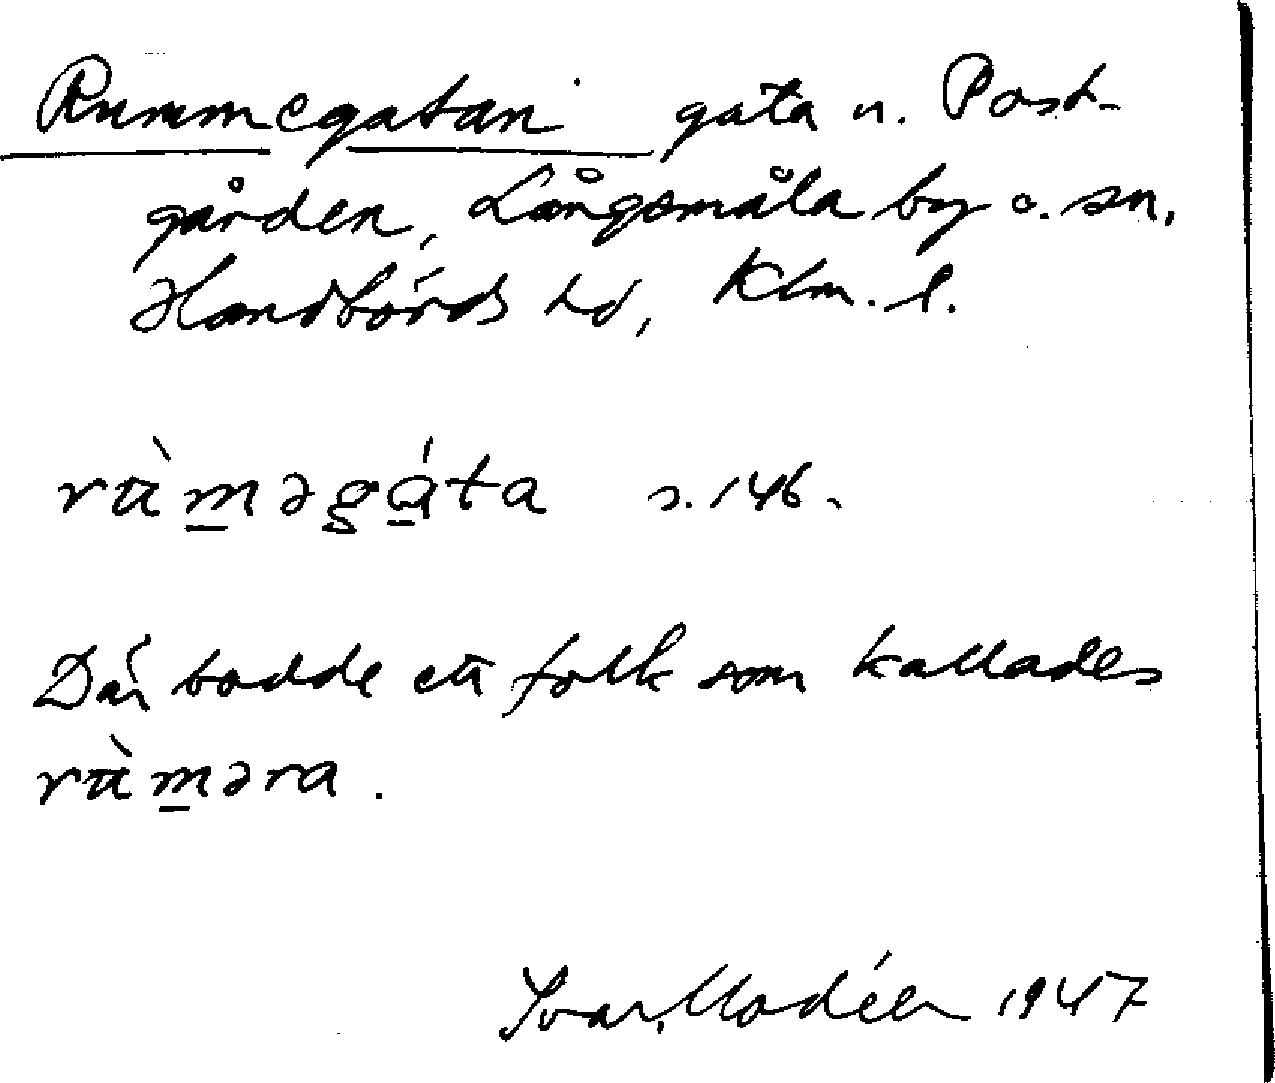 Rummegatan gata n. Post-
gården, Långemåla by o. sn,
Handbörds hd, Klm. l.
rùm̲əgá̲ta s. 146.
Där bodde ett folk som kallades
rùm̲əra.
Ivar Modéer 1947